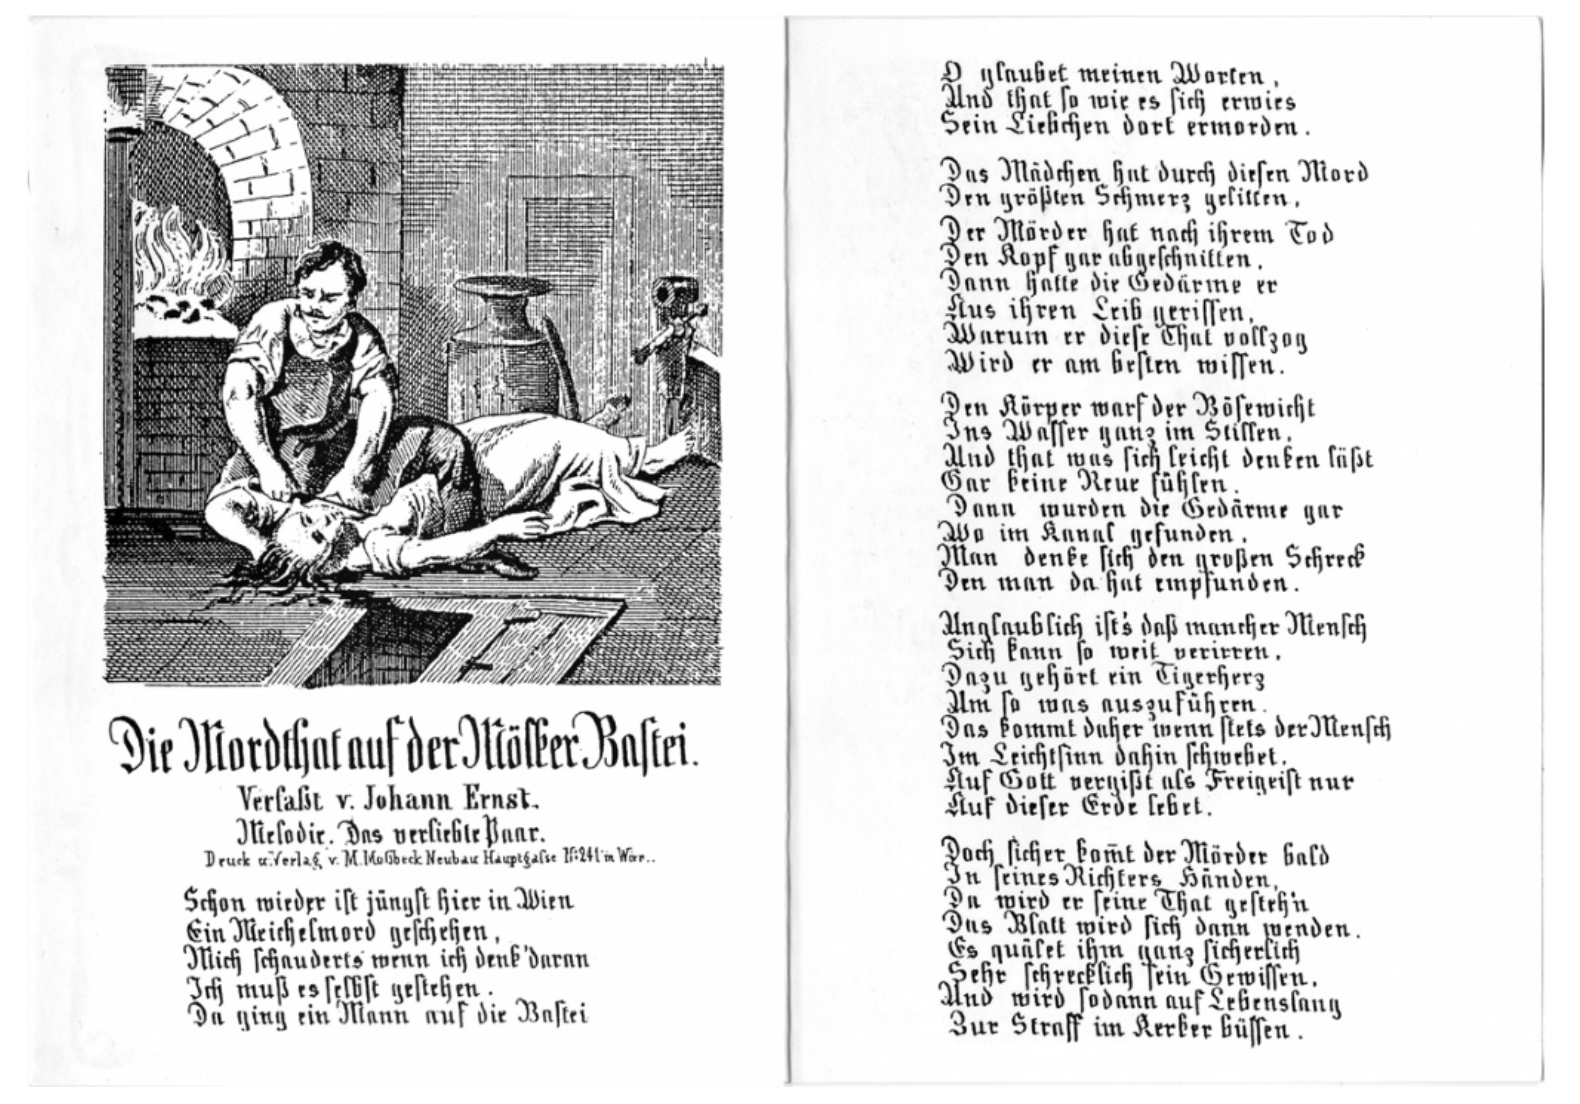 Die Mordthat auf der Mölker Bastei.
Verfaßt v. Johann Ernst.
Melodie. Das verliebte Paar.
Druck u. Verlag v. M. Moßbeck Neubau Hauptgasse No: 241 in Wien..
Schon wieder ist jüngst hier in Wien
Ein Meichelmord geschehen,
Mich schauderts wenn ich denk' daran
Ich muß es selbst gestehen.
Da ging ein Mann auf die Bastei
O glaubet meinen Worten,
Und that so wie es sich erwies
Sein Liebchen dort ermorden.
Das Mädchen hat durch diesen Mord
Den größten Schmerz gelitten,
Der Mörder hat nach ihrem Tod
Den Kopf gar abgeschnitten,
Dann hatte die Gedärme er
Aus ihren Leib gerissen,
Warum er diese That vollzog
Wird er am besten wissen.
Den Körper warf der Bösewicht
Ins Wasser ganz im Stillen,
Und that was sich leicht denken läßt
Gar keine Reue fühlen.
Dann wurden die Gedärme gar
Wo im Kanal gefunden,
Man denke sich den großen Schreck
Den man da hat empfunden.
Unglaublich ist's daß mancher Mensch
Sich kann so weit verirren,
Dazu gehört ein Tigerherz
Um so was auszuführen.
Das kommt daher wenn stets der Mensch
Im Leichtsinn dahin schwebet,
Auf Gott vergißt als Freigeist nur
Auf dieser Erde lebet.
Doch sicher kom̅t der Mörder bald
In seines Richters Händen,
Da wird er seine That gesteh'n
Das Blatt wird sich dann wenden.
Es quälet ihm ganz sicherlich
Sehr schrecklich sein Gewissen,
Und wird sodann auf Lebenslang
Zur Straff im Kerker büssen.